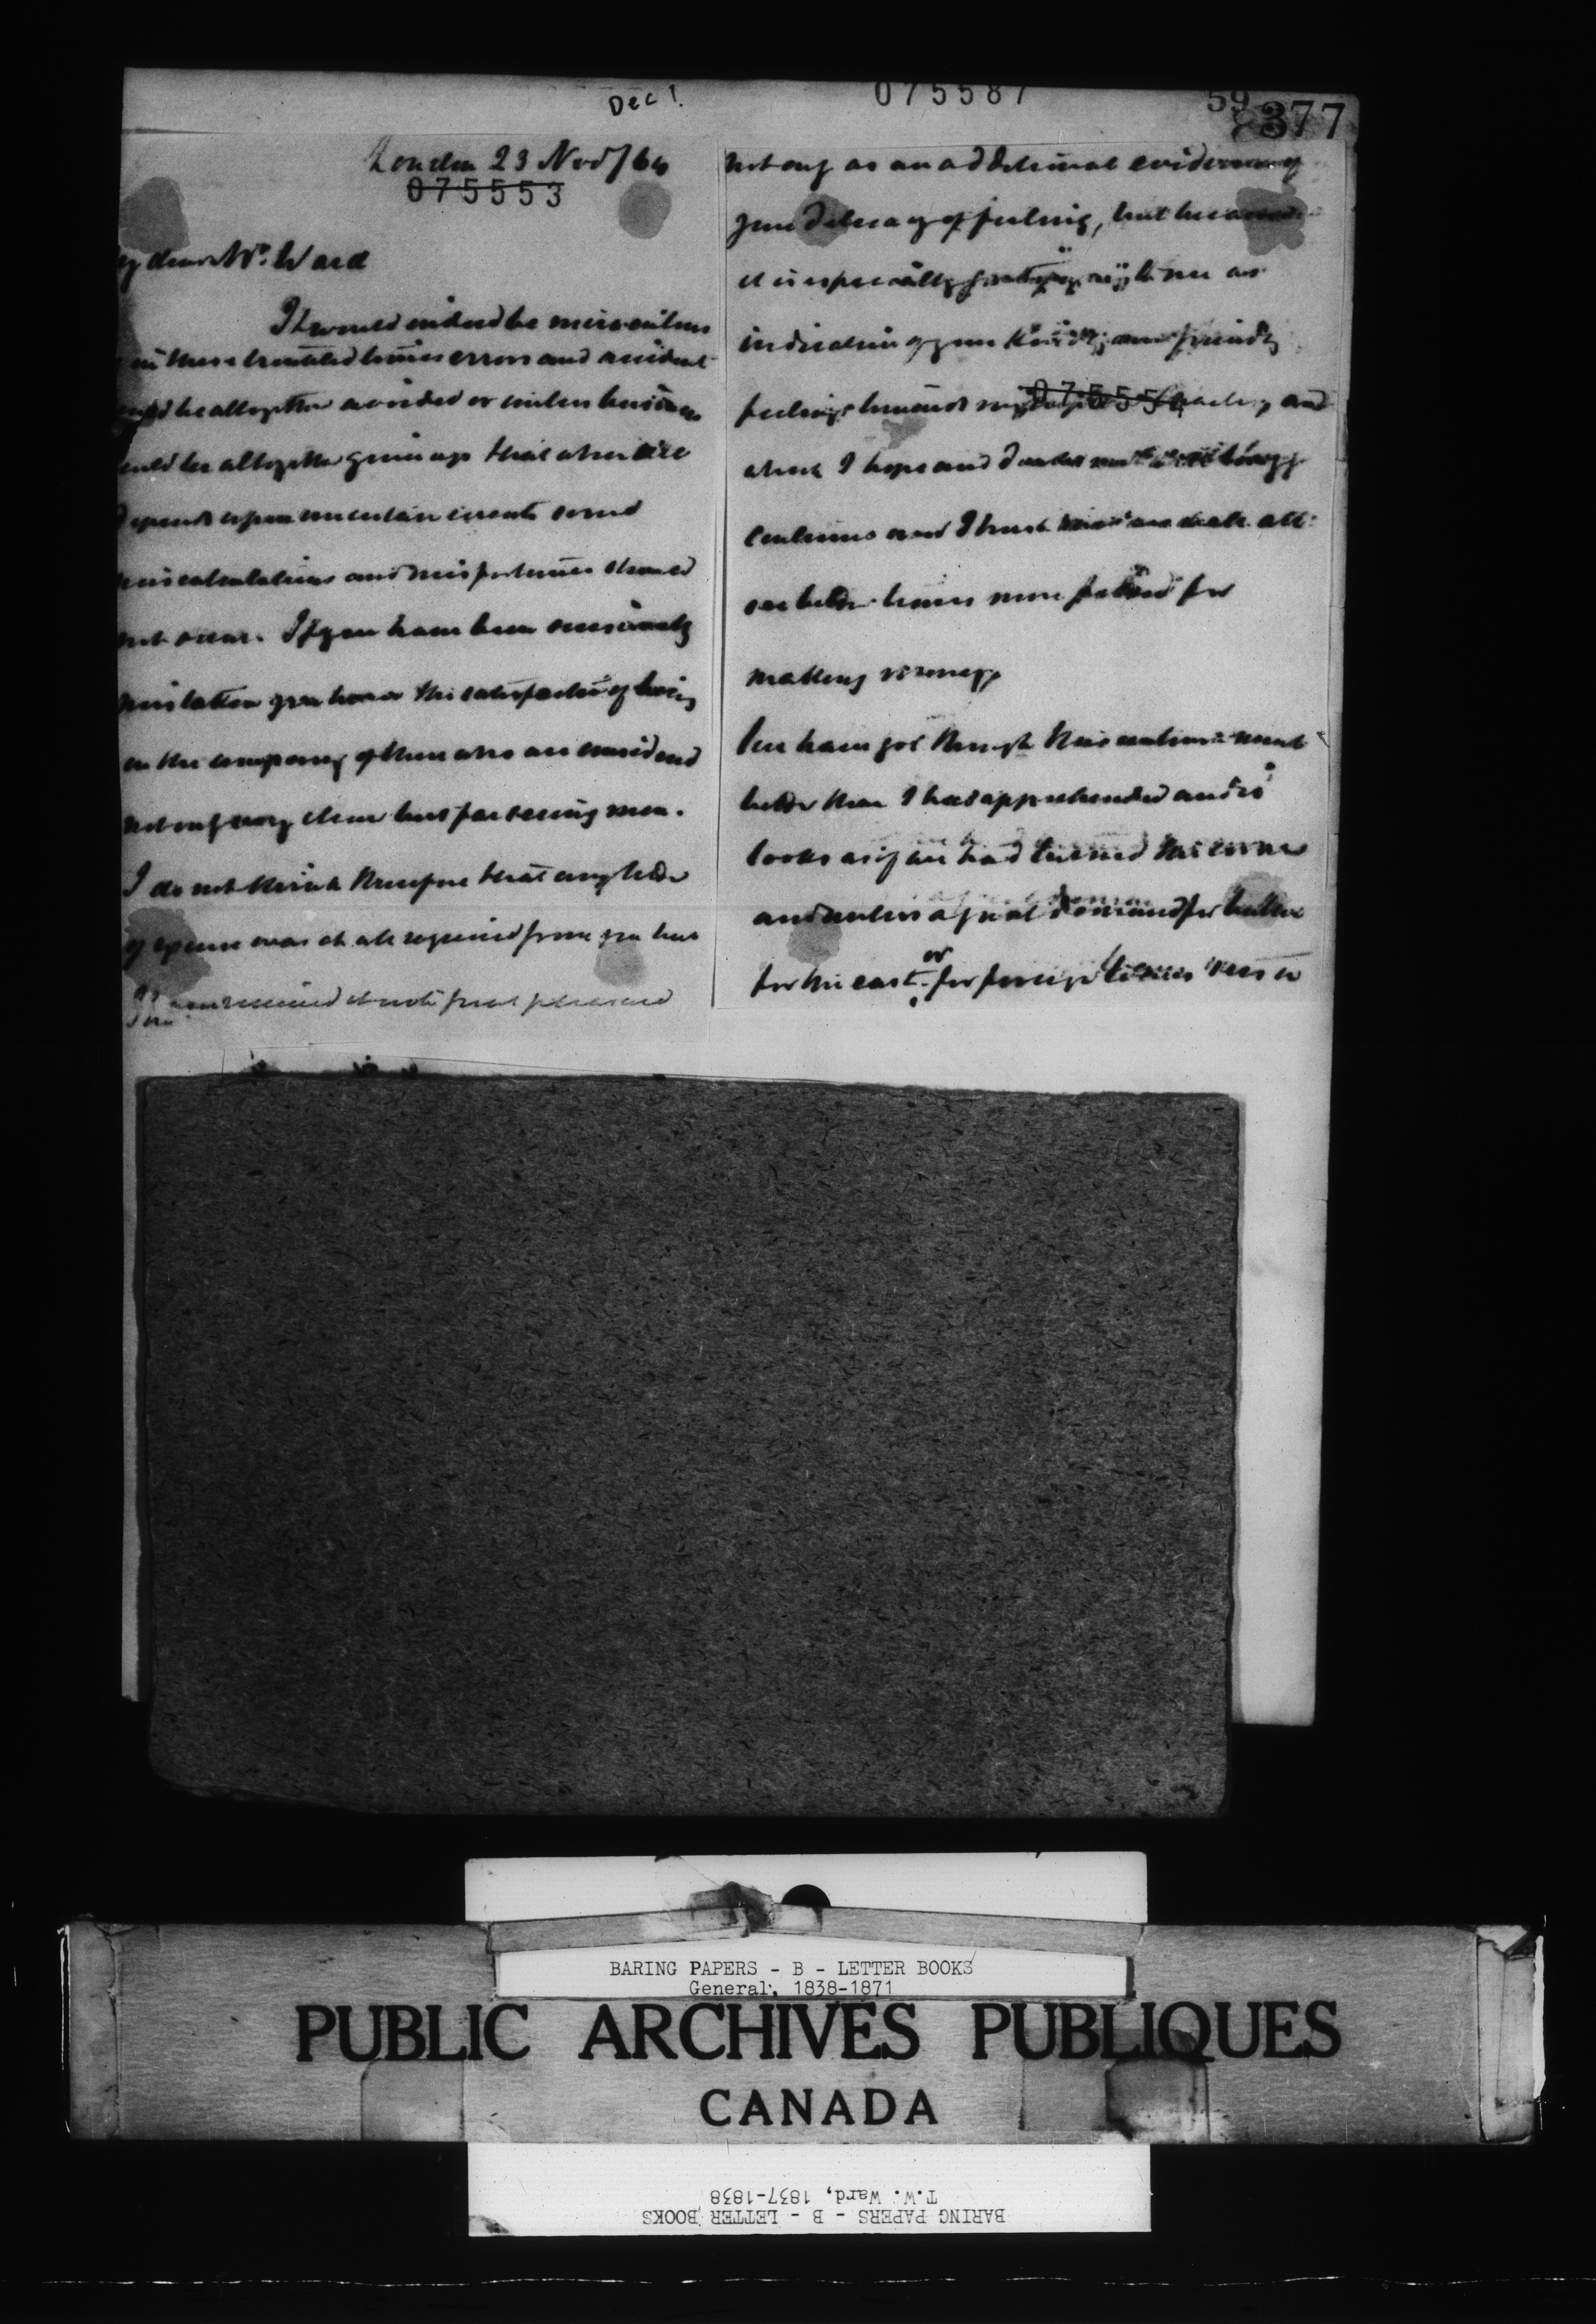 Dec 1.
075587
59
377
London 23 Nov/64
075553
my dear Mr. Ward
It would indeed be miraculous
in these troubled times errors and accidents
could be altogether avoided or unless business
could be altogether given up that when all
depends upon uncertain events some
miscalculations and misfortunes should
not occur. If you have been occasionally
mistaken you have the satisfaction of being
in the company of those who are considered
not only very clever but far seeing men.
I do not think therefore that any letter
of was at all required from you but
received it with great pleasure
not only as an additional evidence of
your delicacy of feeling, but because
it is especially to me as
indication of your kindly and friendly
feelings towards myself and
075554
which I hope and I doubt not will long
continue and I trust we shall all
see better times more for
making money
You have got through this
better than I had apprehended and it
looks as if we had turned the corner
and unless a great demand for bullion
for the east or for foreign
BARING PAPERS - B - LETTER BOOKS
General, 1838-1871
PUBLIC ARCHIVES PUBLIQUES
CANADA
BARING PAPERS - B - LETTER BOOKS
T.W. Ward, 1837-1838